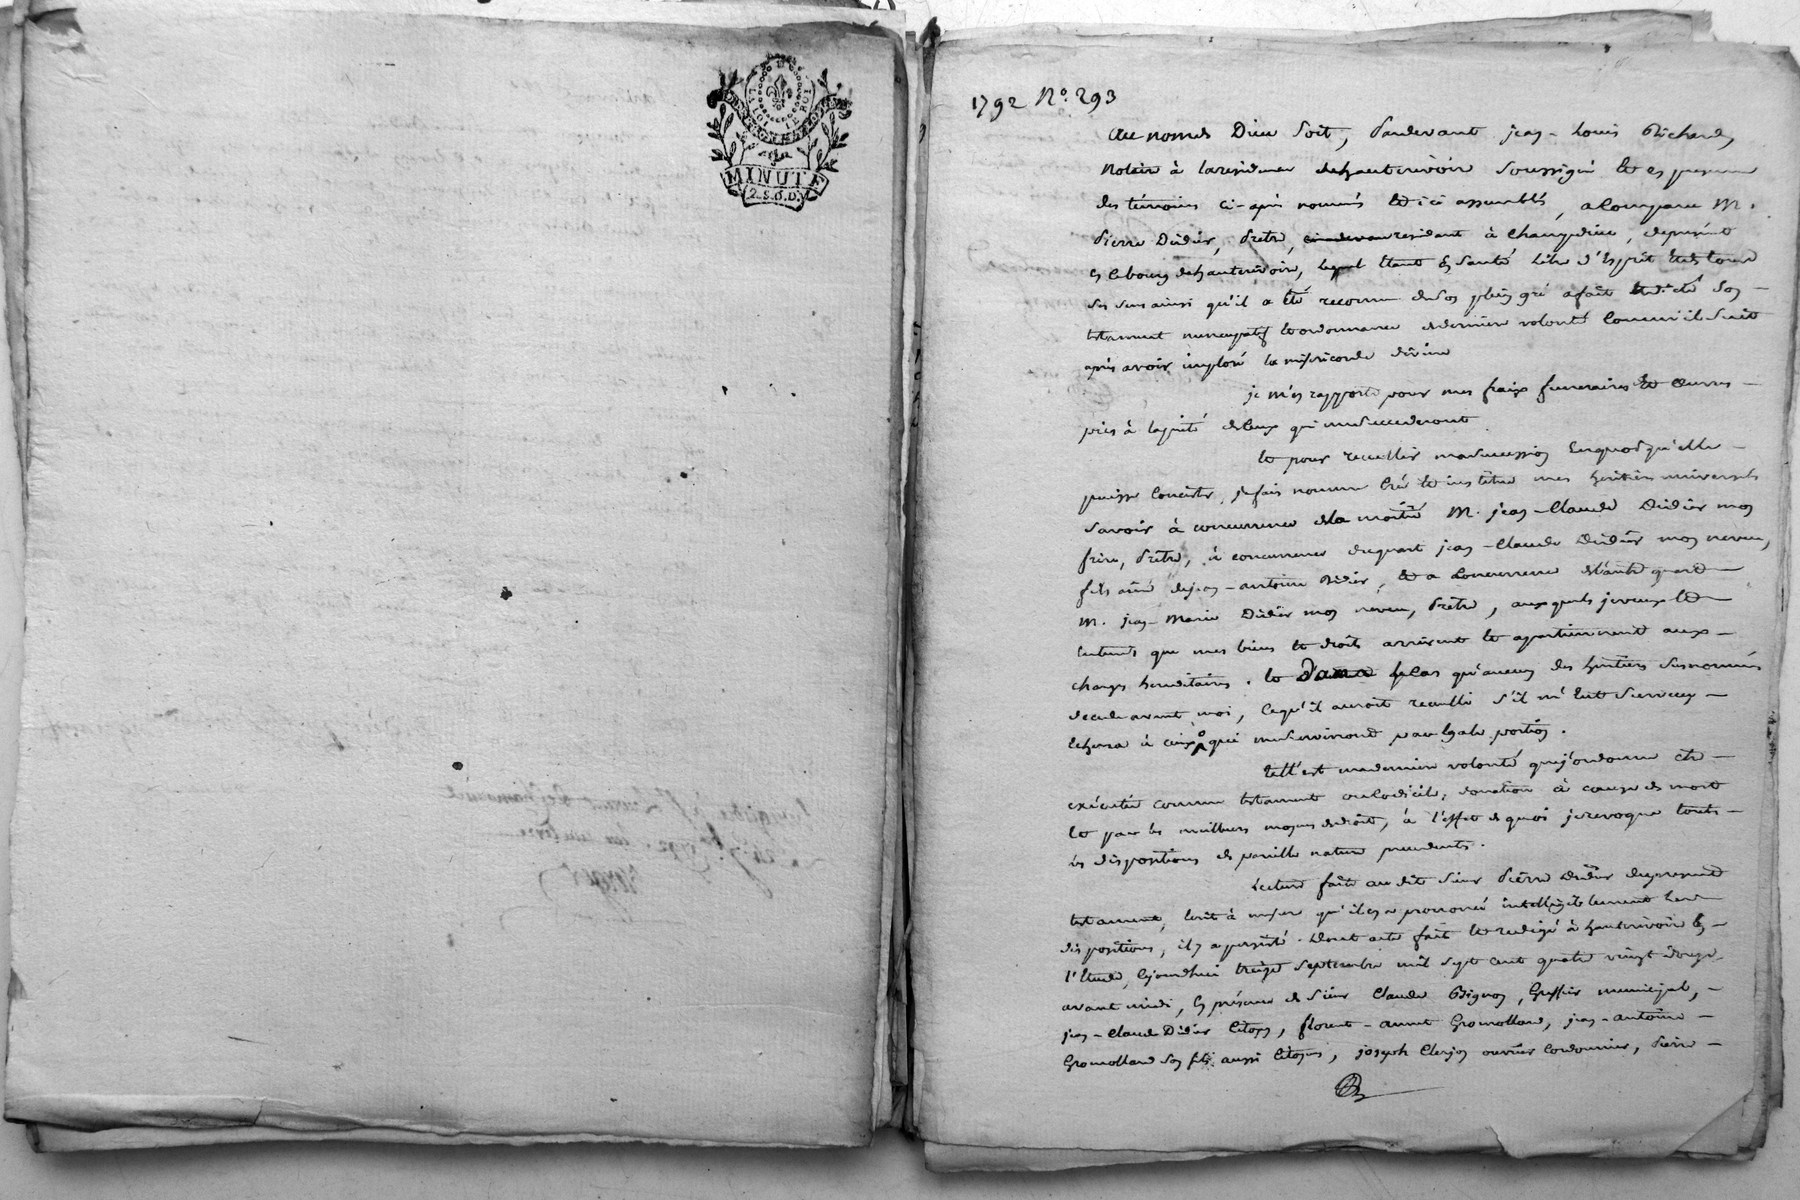 LA LOI LE ROI
MINUTE
2. S. 6. D.
1792 N.º 293
Au nom de Dieu soit, pardevant jean-Louis Richard,
Notaire à la residence de hauterivoire soussigné et en presence
des témoins ci-après nommés et ici assemblés, a comparu M.
Pierre Didier, Prêtre, residant à, depresent
en ce bourg de hauterivoire, lequel étant en santé libre d'Esprit et de tous
ses sens ainsi qu'il a été reconnu de son plein gré a fait et dicté son
testament nuncupatif et ordonnance de derniere volonté comme il suit
après avoir imploré la misericorde divine
je m'en rapporte pour mes fraix funeraires et œuvres
pies à la pieté de ceux qui me succederont
et pour recuillir ma succession en quoi qu'elle
puisse consister, je fais nomme créé et institue mes héritiers universels
savoir à concurrence de la moitié M. jean-Claude Didier mon
frère, Prêtre, à concurrence du quart jean-Claude Didier mon neveu,
fils ainé de jean-antoine Didier, et a concurrence de l'autre quart
M. jean-Marie Didier mon neveu, Prêtre, auxquels je veux et
entends que mes biens et droits arrivent et apartiennent aux
charges hereditaires. et Dans le cas qu'aucun des héritiers susnommés
decede avant moi, ce qu'il auroit recuilli s'il m'eut survecu
echerra à ceux qui me survivront par égale portion.
telle est ma derniere volonté que j'ordonne être
exécutée comme testament ou codicile, donation à cause de mort
et par les meilleurs moyens de droit, à l'effet de quoi je revoque toutes
les dispositions de pareille nature precedentes.
Lecture faite au dit sieur Pierre Didier du present
testament, écrit à mesure qu'il en a prononcé intelligiblement les
dispositions, il y a persisté. Dont acte fait et redigé à hauterivoire en
l'Etude, cejourdhui treize septembre mil sept cent quatre vingt douze
avant midi, en présence de sieur Claude Bignon, Greffier municipal,
jean-Claude Didier Citoyen, florent-annet Gromolland, jean-antoine
Gromolland son fils aussi Citoyens, joseph Clerjon ouvrier Cordonnier, Pierre